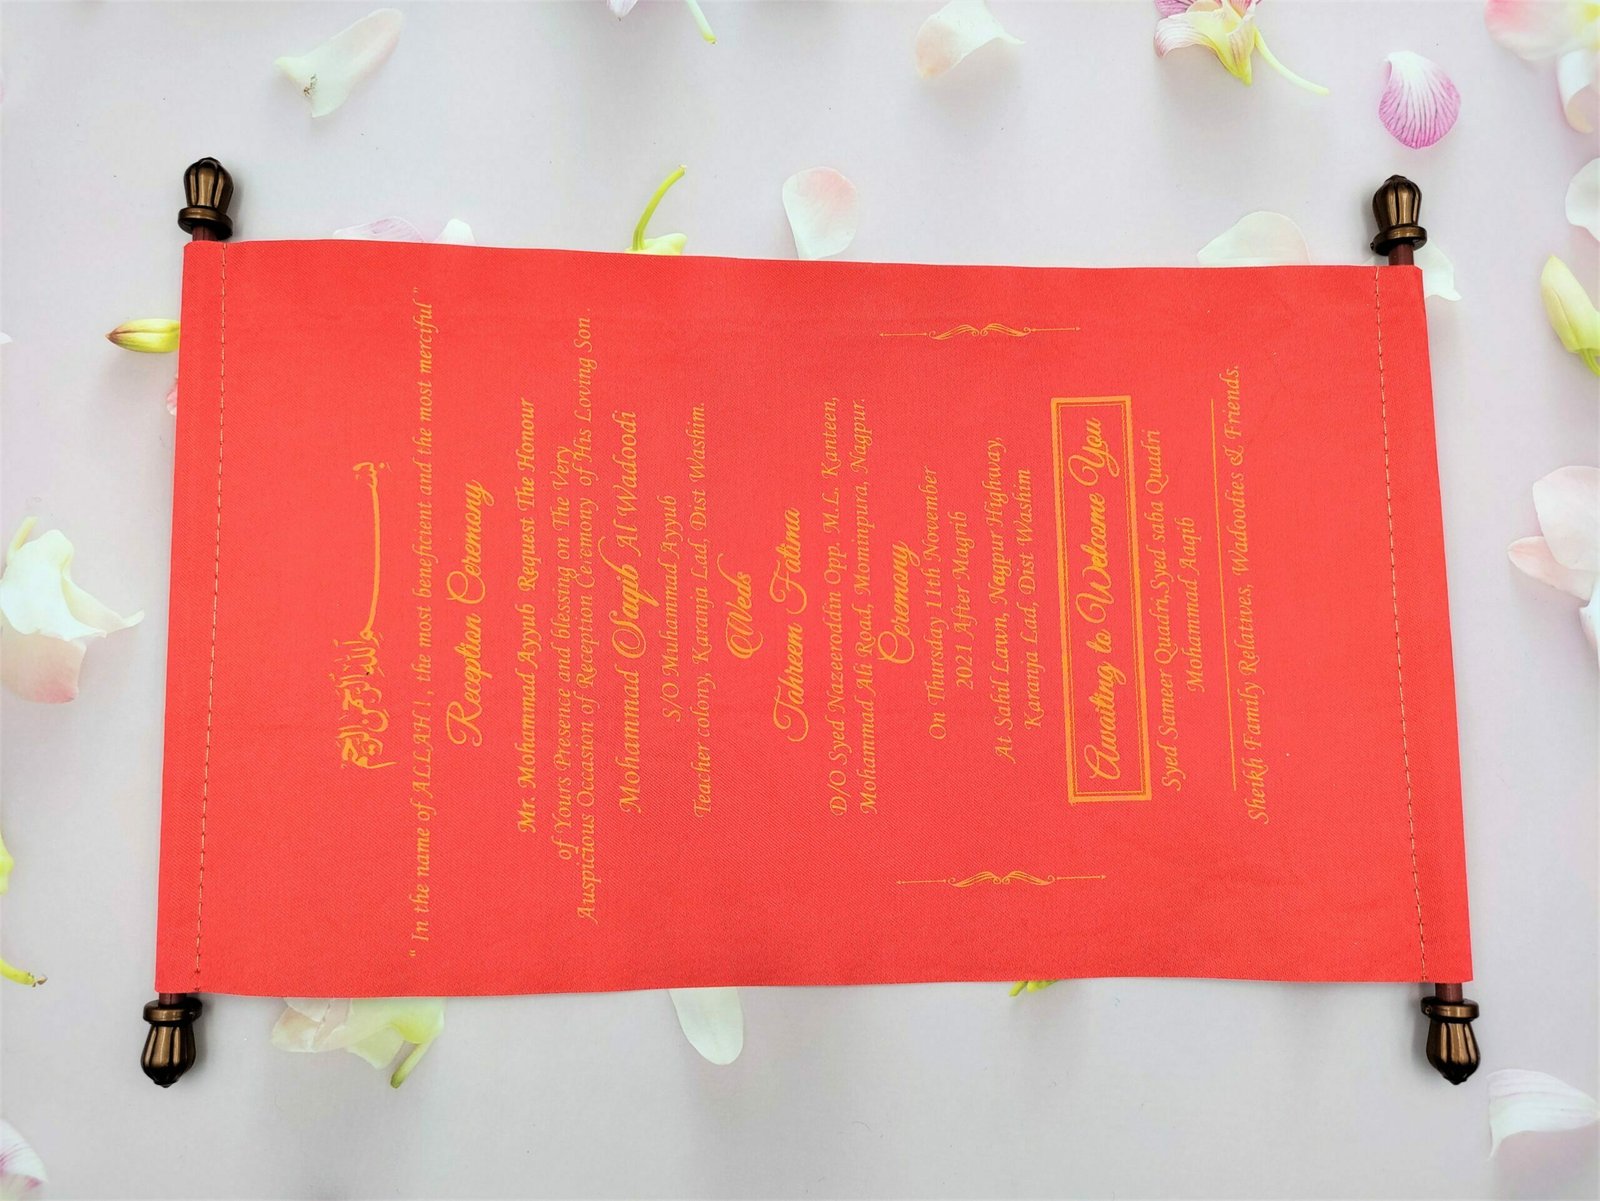 بسم الله الرحمن الرحيم
“ In the name of ALLAH ! , the most beneficient and the most merciful ”
Reception Ceremony
Mr. Mohammad Ayyub Request The Honour
of Yours Presence and blessing on The Very
Auspicious Occasion of Reception Ceremony of His Loving Son
Mohammad Saqib Al Wadoodi
S/O Muhammad Ayyub
Teacher colony, Karanja Lad, Dist Washim.
Weds
Tahreem Fatima
D/O Syed Nazeeroddin Opp. M.L. Kanteen,
Mohammad Ali Road, Mominpura, Nagpur.
Ceremony
On Thursday 11th November
2021 After Magrib
At Sahil Lawn, Nagpur Highway,
Karanja Lad, Dist Washim
Awaiting to Welcome You
Syed Sameer Quadri,Syed saba Quadri
Mohammad Aaqib
Sheikh Family Relatives, Wadoodies & Friends.